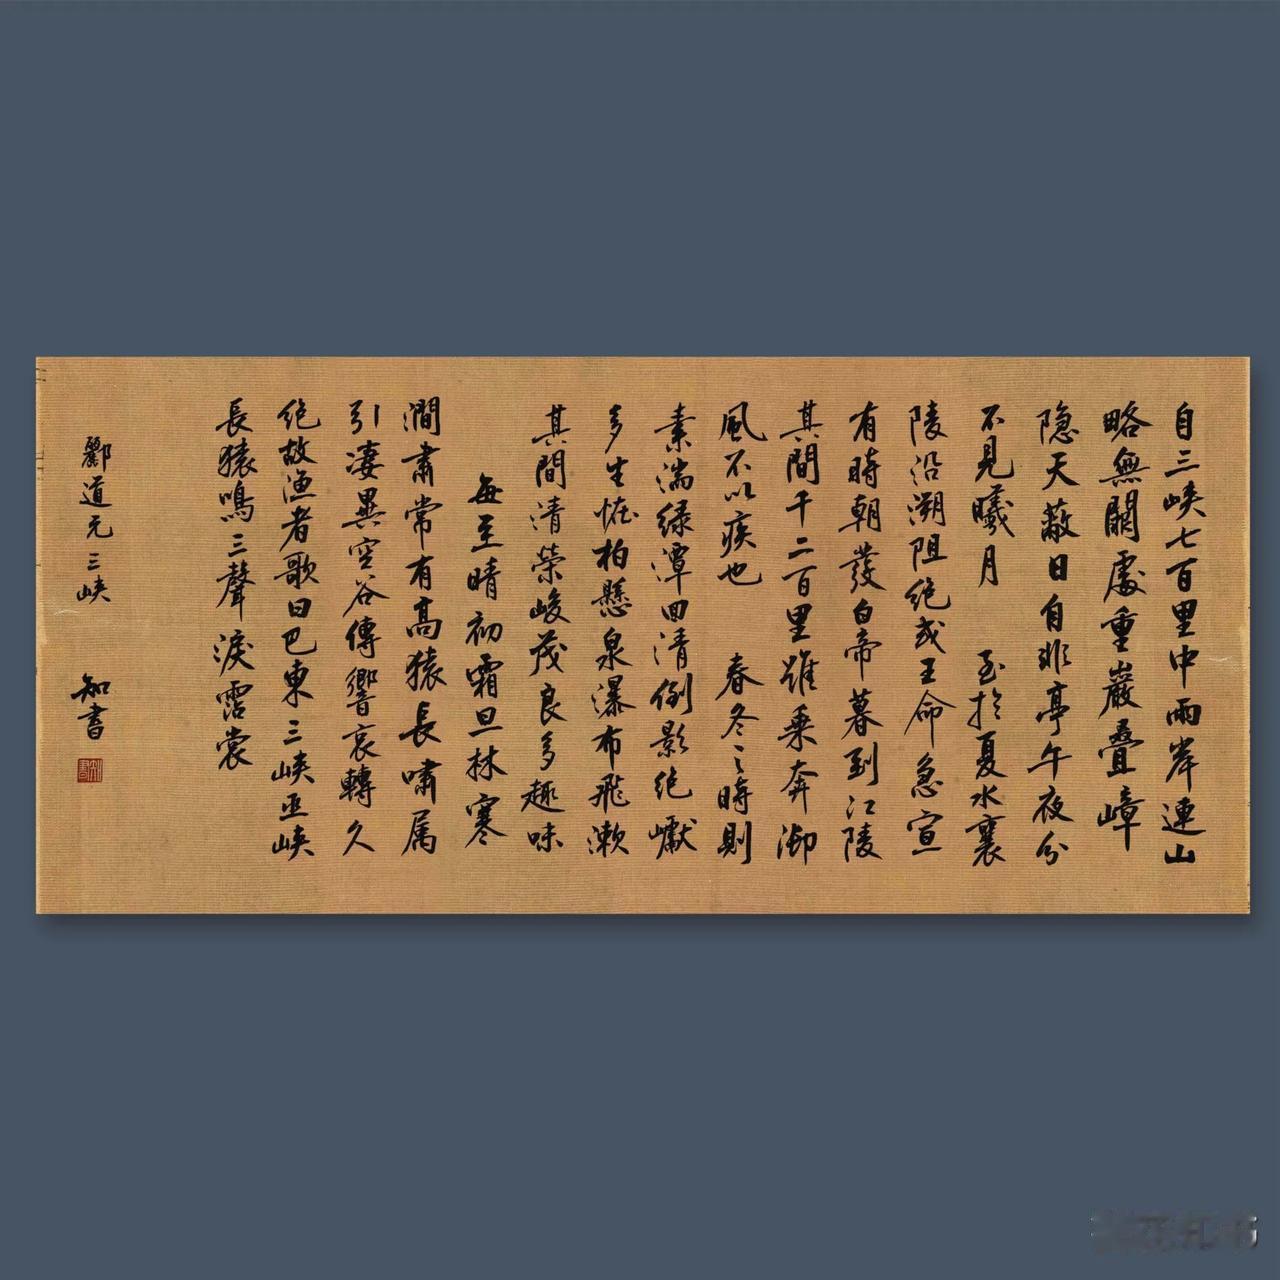 自三峡七百里中兩岸連山
略無闕處重巖疊嶂
隐天蔽日自非亭午夜分
不見曦月 至於夏水襄
陵沿溯阻绝或王命急宣
有時朝發白帝暮到江陵
其間千二百里雖乗奔御
風不以疾也 春冬之時則
素湍緑潭回清倒影绝巘
多生怪柏懸泉瀑布飛漱
其間清榮峻茂良多趣味
每至晴初霜旦林寒
澗肅常有高猿長嘯属
引凄異空谷傳響哀轉久
绝故漁者歌曰巴東三峡巫峡
長猿鳴三聲淚霑裳
酈道元三峡
知書
知書